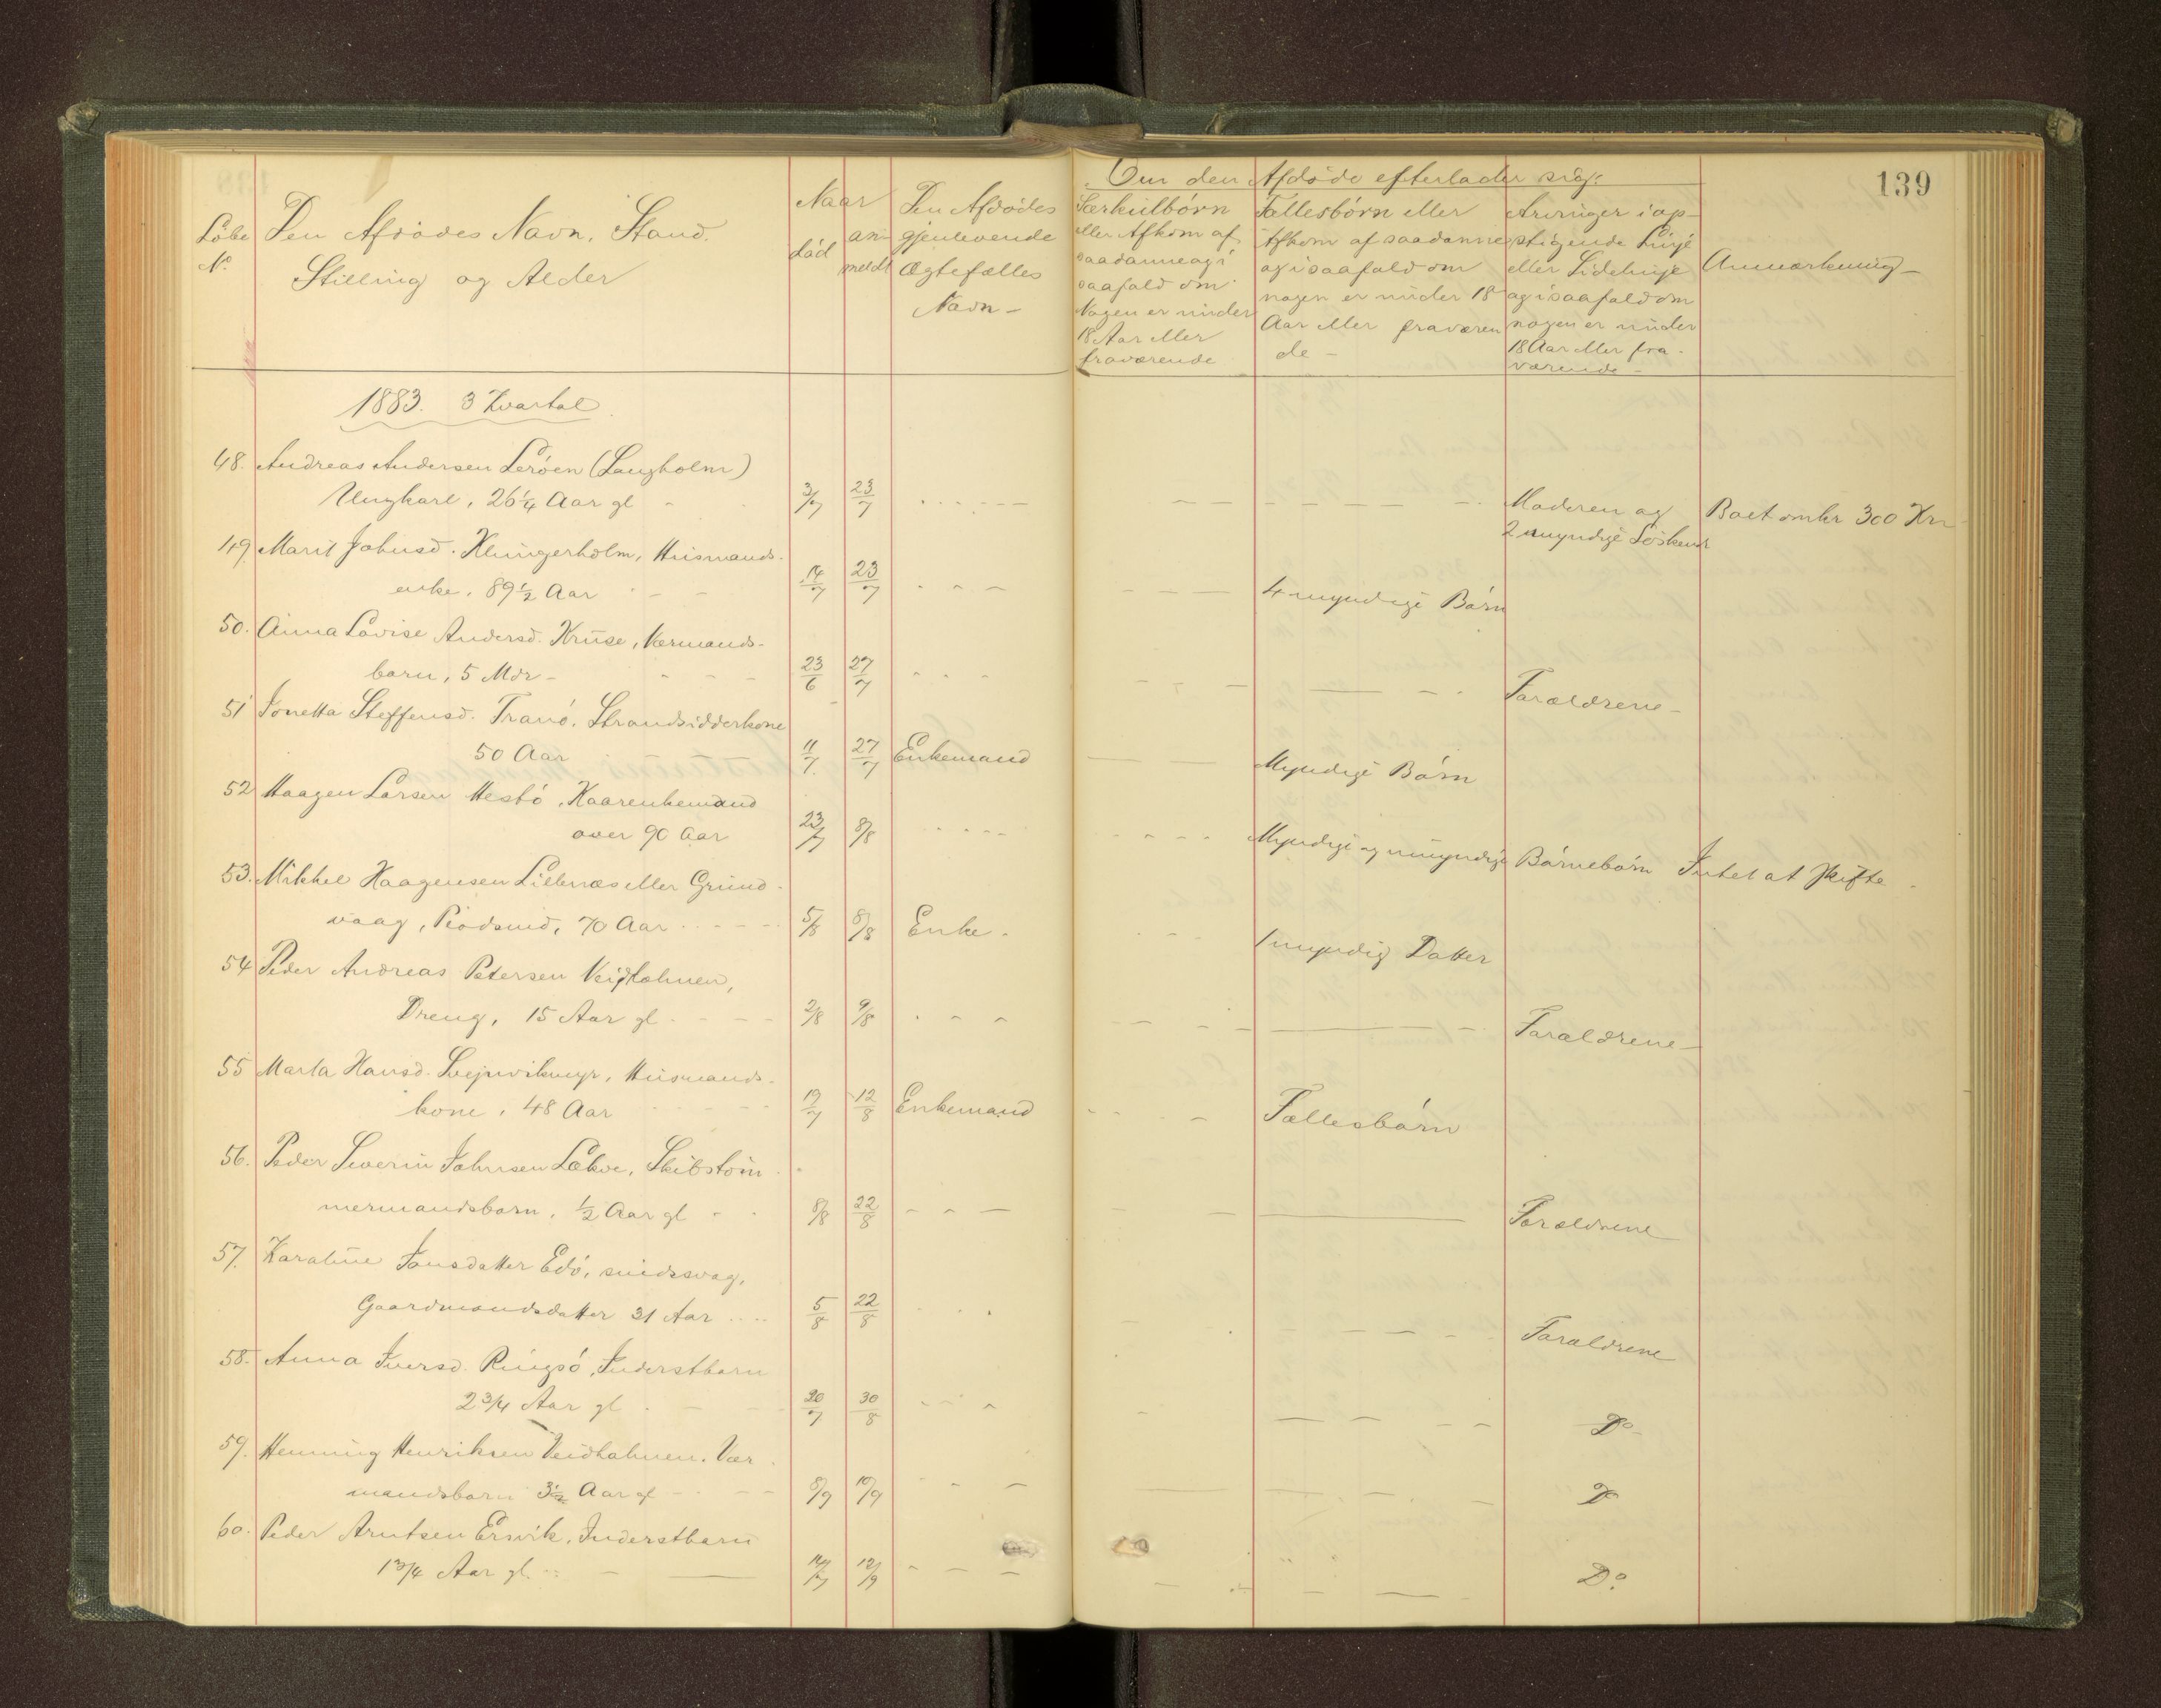 139
Om den Afdöde efterlader sig:
Löbe No.
Den Afdödes Navn, Stand, Stilling og Alder
Naar död
anmeldt
Den Afdödes gjenlevende Ægtefælles Navn –
Særkulbörn eller Afkom af saadanne og i saafald om Nogen er under 18 Aar eller fraværende
Fællesbörn eller Afkom af saadanne og i saafald om nogen er under 18 Aar eller fraværende –
Arvinger i opstigende Linje eller Sidelinje og i saafald om nogen er under 18 Aar eller fraværende –
Anmærkning –
1883. 3 Kvartal
48. Andreas Andersen Leröen (Langholm)
Ungkarl, 26 1/4 Aar gl 3/7 23/7 Moderen og Boet omkr 300 Kr
2 myndige Söskend
49. Marit Johnsd. Klungerholm, Huusmands-
enke, 89 1/2 Aar 14/7 23/7 4 myndige Börn
50. Anna Lovise Andersd. Kruse, Værmands-
barn, 5 Mdr – 23/6 27/7 Forældrene –
51 Jonetta Steffensd. Tranö, Strandsidderkone
50 Aar 11/7 27/7 Enkemand Myndige Börn
52 Haagen Larsen Hestö, Kaarenkemand
over 90 Aar 23/7 8/8 Myndige og umyndige Börnebörn Intet at skifte
53. Mikkel Haagensen Lillenæs eller Grund-
vaag, 70 Aar 5/8 8/8 Enke 1 myndig Datter
54 Peder Andreas Petersen Veidholmen,
Dreng, 15 Aar gl 2/8 9/8 Forældrene –
55 Marta Hansd. Huusmands-
kone, 48 Aar 19/7 12/8 Enkemand Fællesbörn
56. Peder Severin Johnsen Skibstöm-
mermandsbarn, 1/2 Aar gl 8/8 22/8 Forældrene
57. Karoline Jonsdatter Edö, sindssvag,
Gaardmandsdatter 31 Aar 5/8 22/8 Forældrene
58. Anna Iversd. Ringsö, Inderstbarn
2 3/4 Aar gl 20/7 30/8 Do
59. Henning Henriksen Veidholmen, Vær-
mandsbarn 3 1/2 Aar gl 8/9 10/9 Do
60. Peder Arntsen Ersvik, Inderstbarn
1 3/4 Aar gl. 12/9 Do